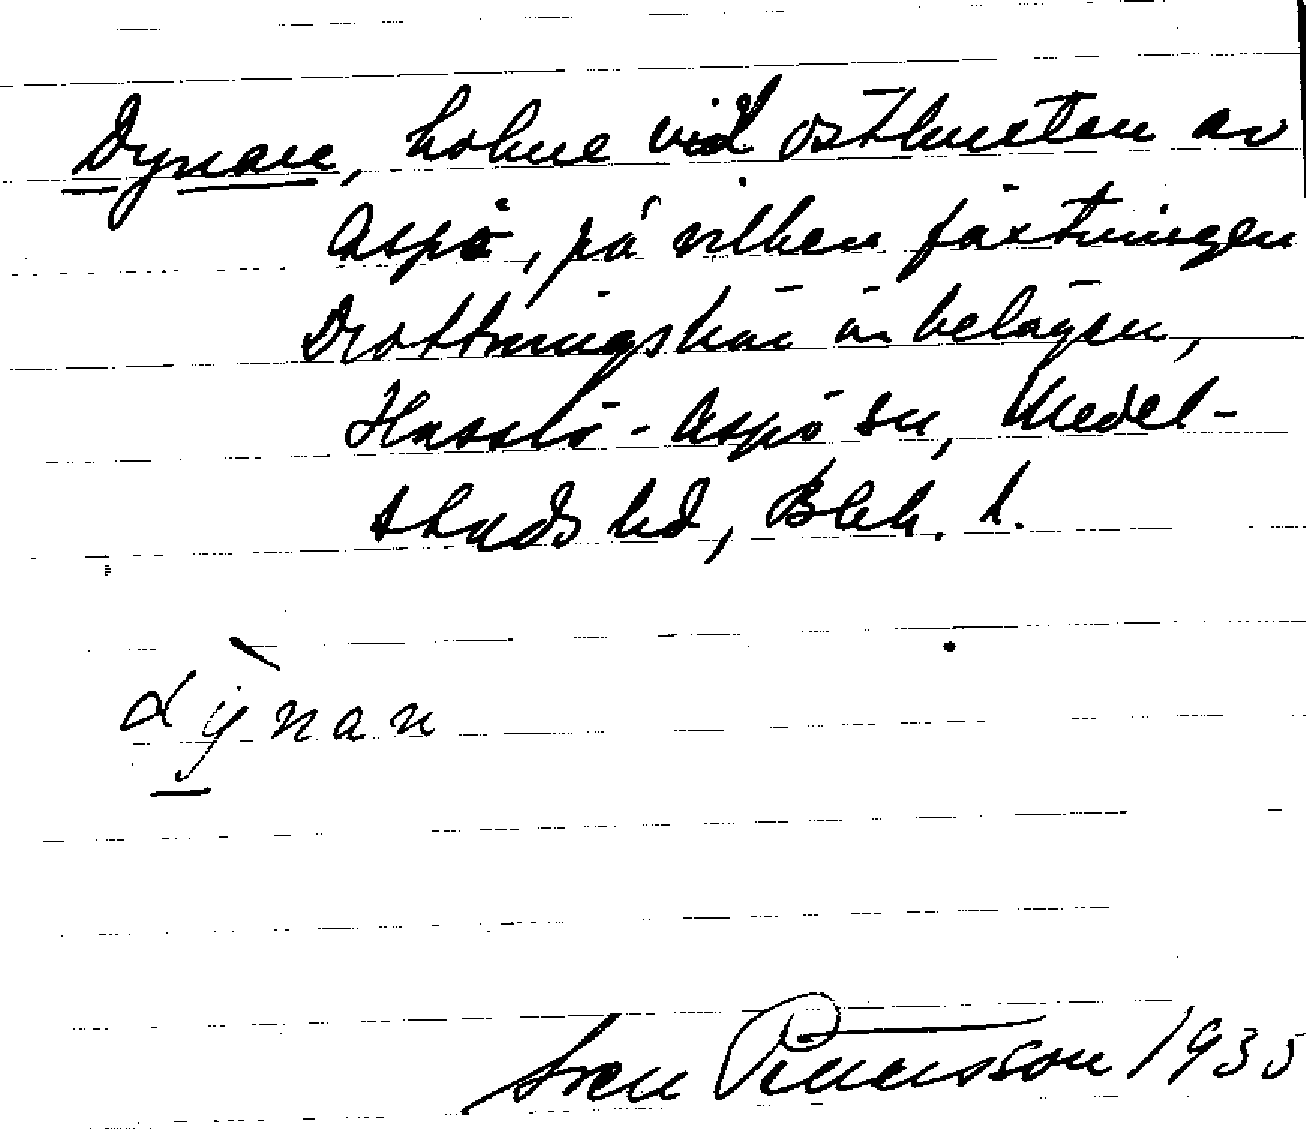 Dynan, holme vid ostkusten av
Aspö, på vilken fästningen
Drottningskär är belägen,
Hasslö-Aspö sn, Medel-
stads hd, Blek. l.
dỳnan
Sven 1935